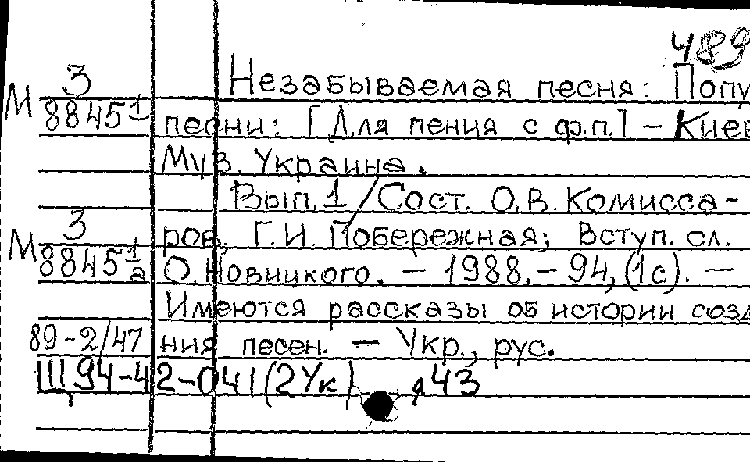 489
М 3 Незабываемая песня: Попу
8845 1 песни: [Для пения с ф.п.] – Киев
Муз. Украина.
Вып. 1 / Сост. О.В. Комисса-
3 ров, Г.И. Побережная; Вступ. сл.
М 8845 1а О. Новицкого. – 1988. – 94, (1с). –
Имеются рассказы об истории созд
89-2/47 ния песен. – Укр., рус.
Щ94-42-041(2Ук) я43